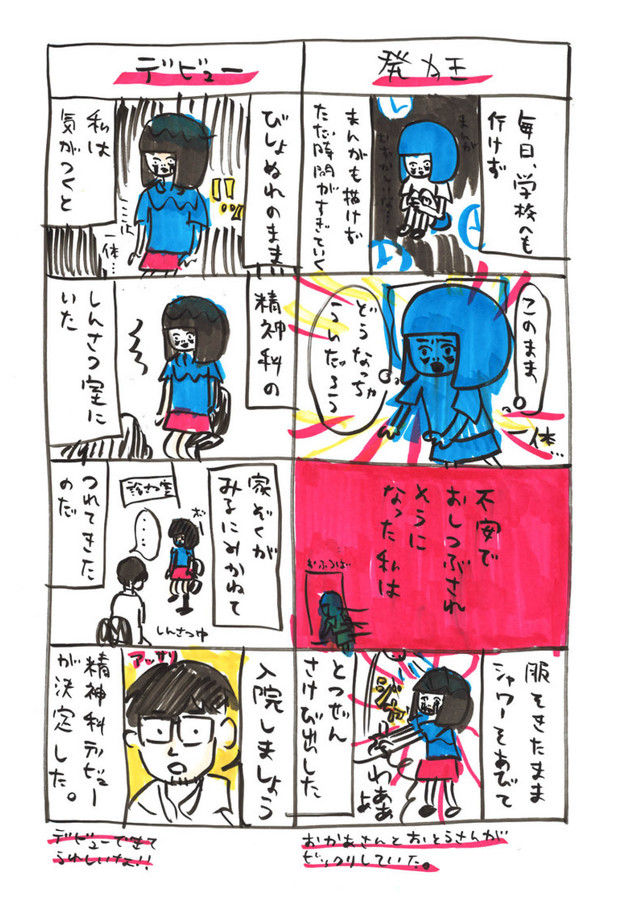 発力王
毎日、学校へも
行けず
まんがも描けず
ただ時間がすぎていく
このまま
どうなっちゃ
うんだろう
一体…
不安で
おしつぶされ
そうに
なった私は
おふろば
服をきたまま
シャワーをあびて
とつぜん
さけび出した
おかあさんとおとうさんが
ビックリしていた。
デビュー
びしょぬれのまま
!!
私は
気がつくと
ここは
一体…
精神科の
しんさつ室に
いた
家ぞくが
みるにみかねて
診さつ室
…
しんさつ中
つれてきた
のだ
入院しましょう
アッサリ
精神科デビュー
が決定した。
デビューできて
うれしいな!!